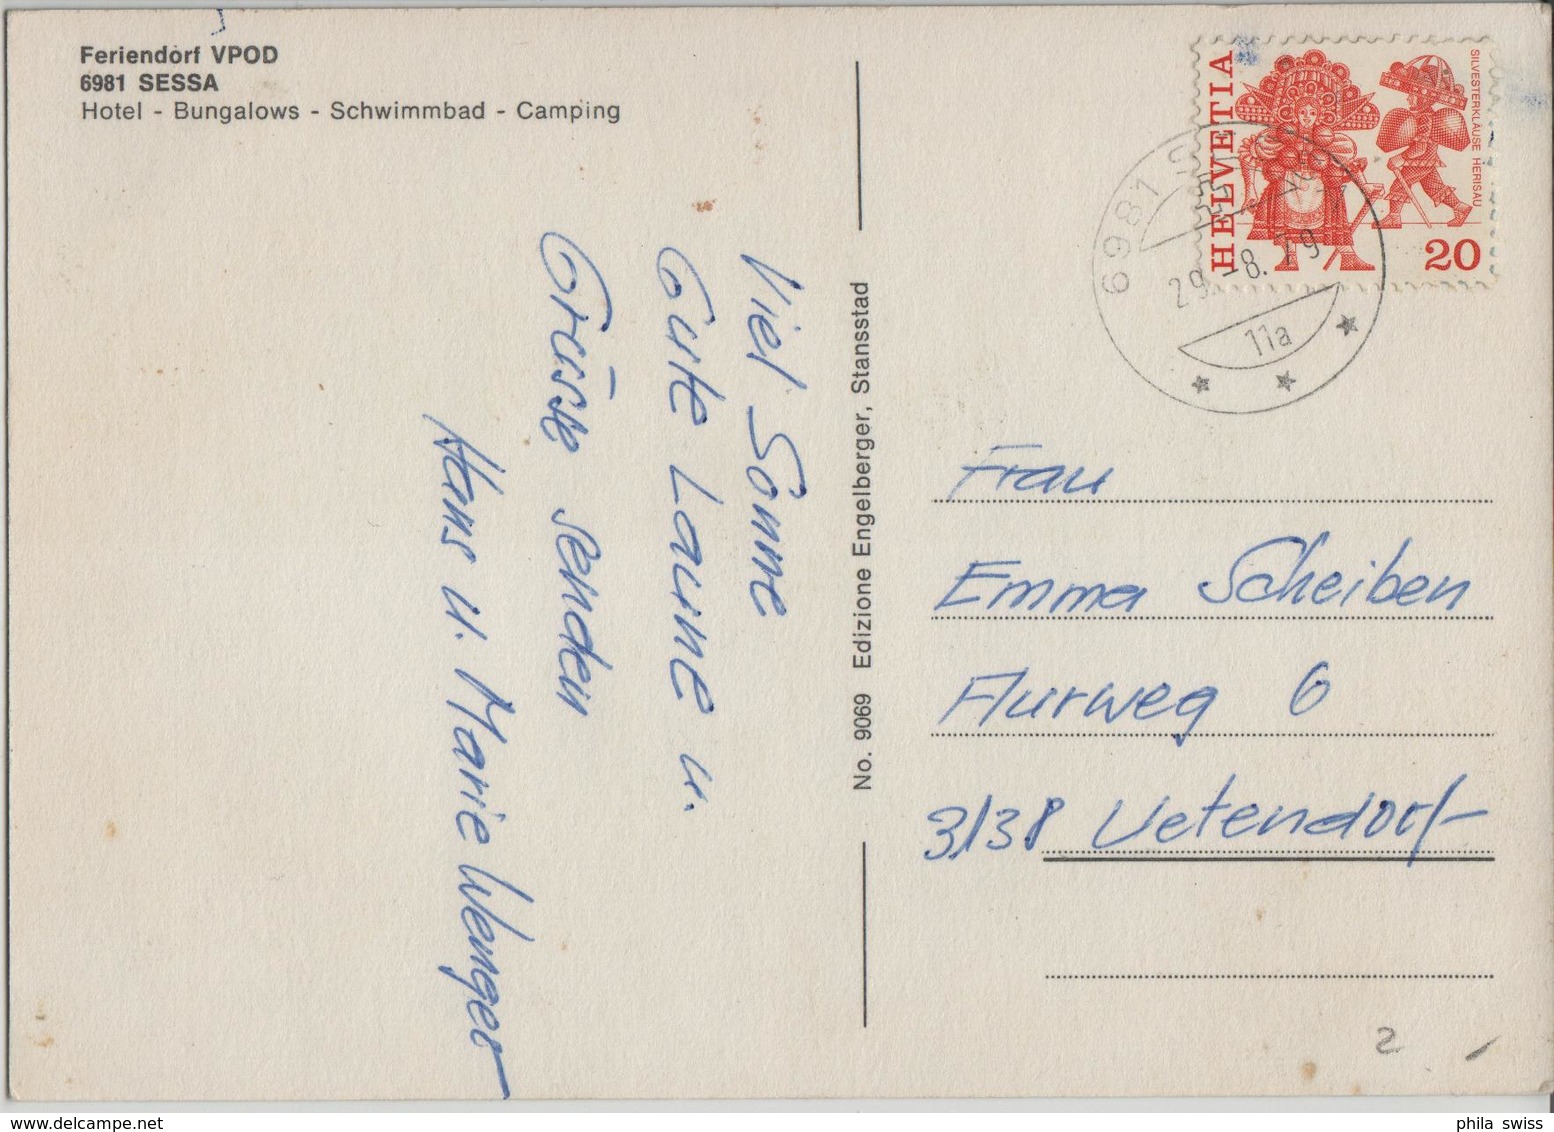 Feriendorf VPOD
6981 SESSA
Hotel - Bungalows - Schwimmbad - Camping
Viel Sonne
Gute Laune u.
Grüsse senden
Hans u. Marie Wenger
No. 9069 Edizione Engelberger, Stansstad
HELVETIA
SILVESTERKLÄUSE HERISAU
20
6981 SESSA
29.-8.79
11a
Frau
Emma Scheiben
Flurweg 6
3138 Uetendorf
2
phila swiss